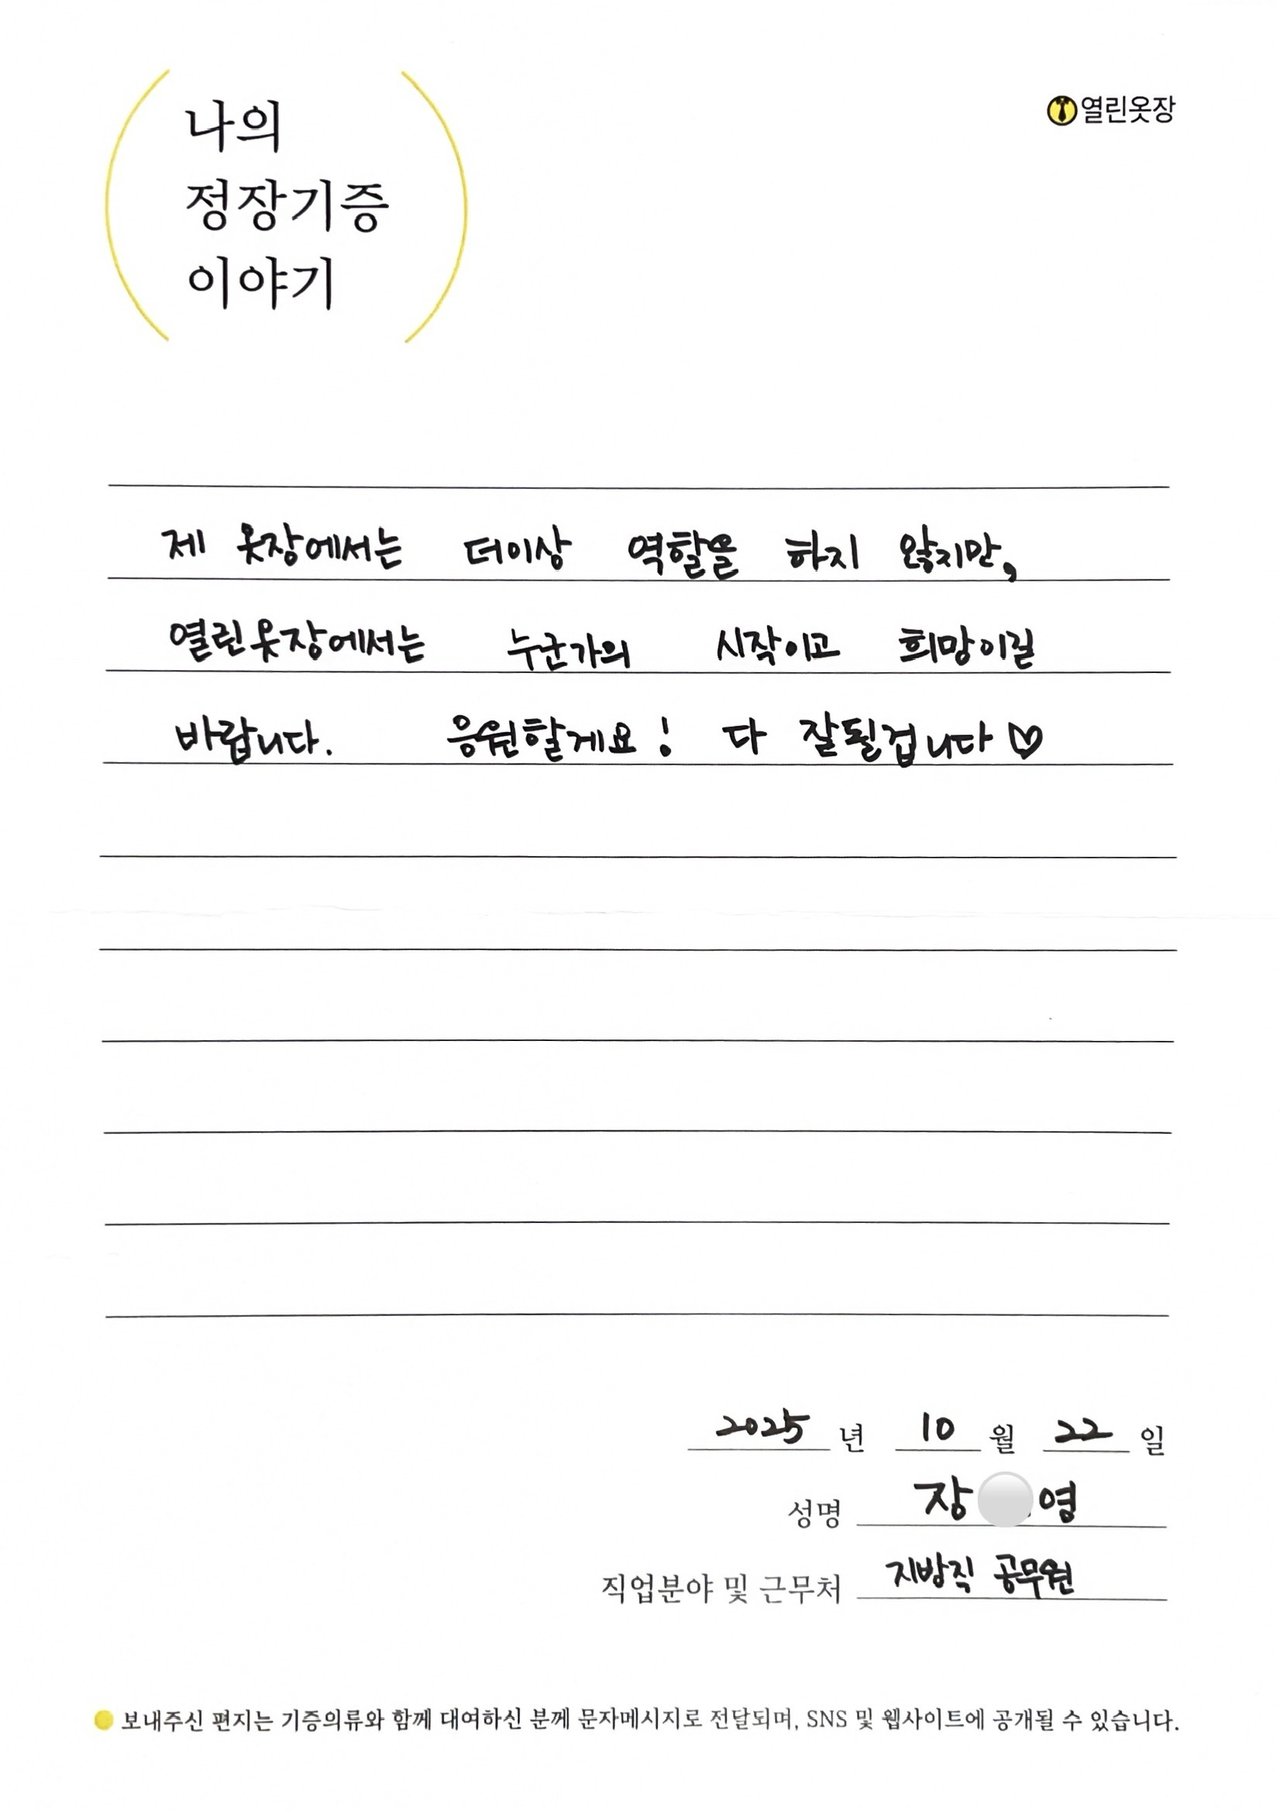 나의
정장기증
이야기
열린옷장
제 옷장에서는 더이상 역할을 하지 않지만,
열린옷장에서는 누군가의 시작이고 희망이길
바랍니다. 응원할게요! 다 잘될겁니다♡
2025 년 10 월 22 일
성명 장 영
직업분야 및 근무처 지방직 공무원
보내주신 편지는 기증의류와 함께 대여하신 분께 문자메시지로 전달되며, SNS 및 웹사이트에 공개될 수 있습니다.